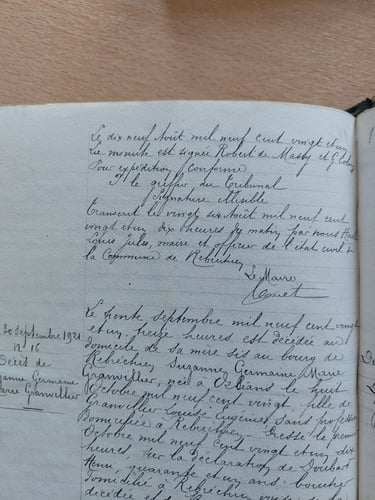 Le dix neuf Août mil neuf cent vingt et un
La minute est signée Robert de Massy et G
Pour expédition conforme
P le greffier du tribunal
Signature illisible
transcrit le vingt six Août mil neuf cent
vingt et un, dix heures du matin par nous
Louis Jules, maire et officier de l'état civil de
la Commune de Rebréchien
Le Maire
30 septembre 1921
N. 16
Décès de
Germaine
Marie Granvillier
Le trente septembre mil neuf cent vingt
et un, treize heures est décédée au
domicile de sa mère sis au bourg de
Rebréchien, Suzanne Germaine Marie
Granvillier, née à Orléans le huit
Octobre mil neuf cent vingt, fille de
Granvillier Louise Eugénie, sans profession
domiciliée à Rebréchien. Dressé le premier
Octobre mil neuf cent vingt et un, dix
heures, sur la déclaration de
Henri, quarante et un ans, boucher
domicilié à Rebréchien
décédée et